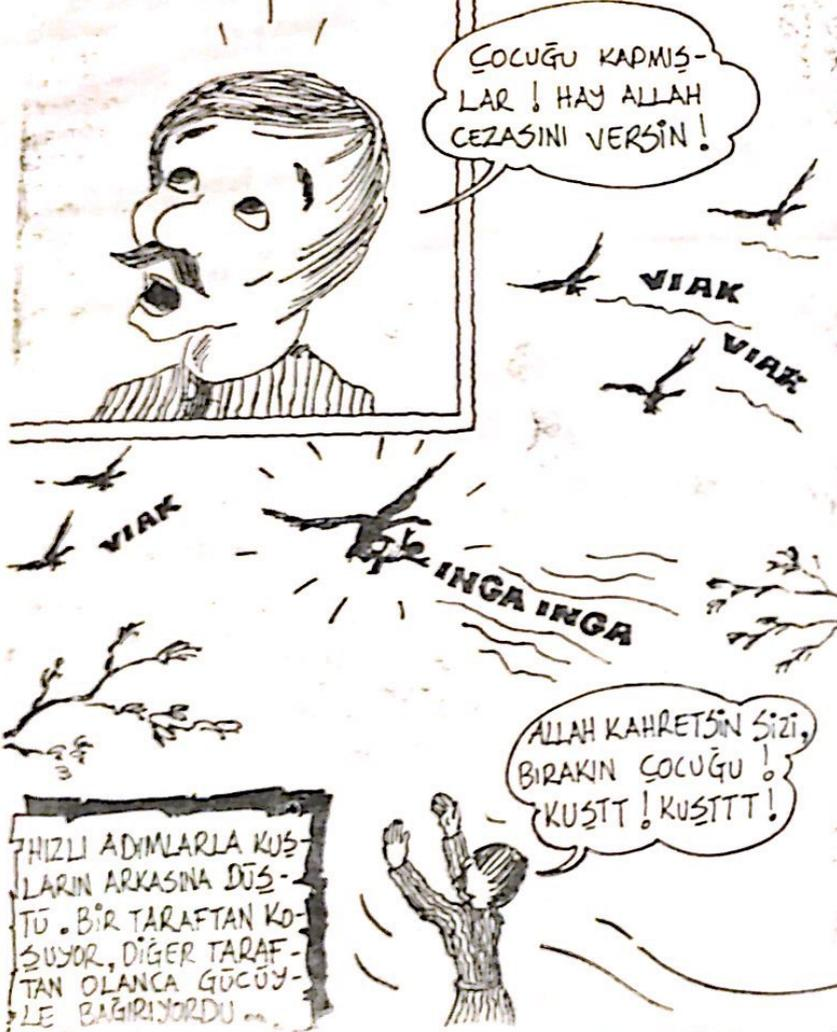 ÇOCUĞU KAPMIŞ-
LAR ! HAY ALLAH
CEZASINI VERSİN !
VIAK
VIAK
VIAK
INGA INGA
ALLAH KAHRETSİN SİZİ,
BIRAKIN ÇOCUĞU !
KUŞTT ! KUŞTTT !
HIZLI ADIMLARLA KUŞ-
LARIN ARKASINA DÜŞ-
TÜ . BİR TARAFTAN KO-
ŞUYOR, DİĞER TARAF-
TAN OLANCA GÜCÜY-
LE BAĞIRIYORDU ...